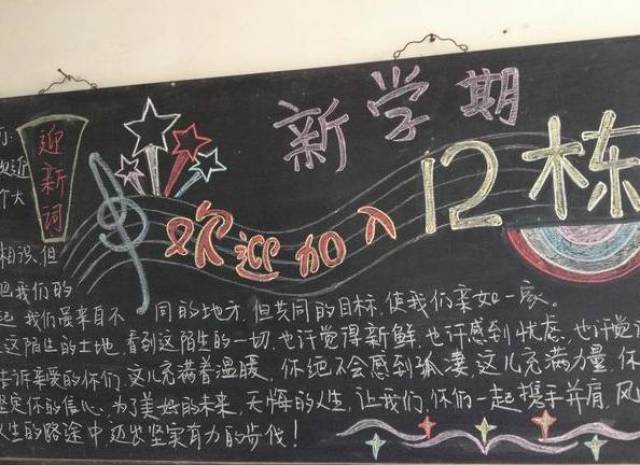 新学期
12栋
欢迎加入
迎新词
迎
个大
相识、但
把我们的
起 我们虽来自不同的地方，但共同的目标，使我们亲如一家。
这陌生的土地，看到这陌生的一切，也许觉得新鲜，也许感到忧虑，也许觉
告诉亲爱的你们，这儿充满着温暖，你绝不会感到孤凄，这儿充满力量，你
坚定你的信心，为了美好的未来，无悔的人生，让我们你们一起携手并肩，风
人生的路途中迈出坚实有力的步伐！